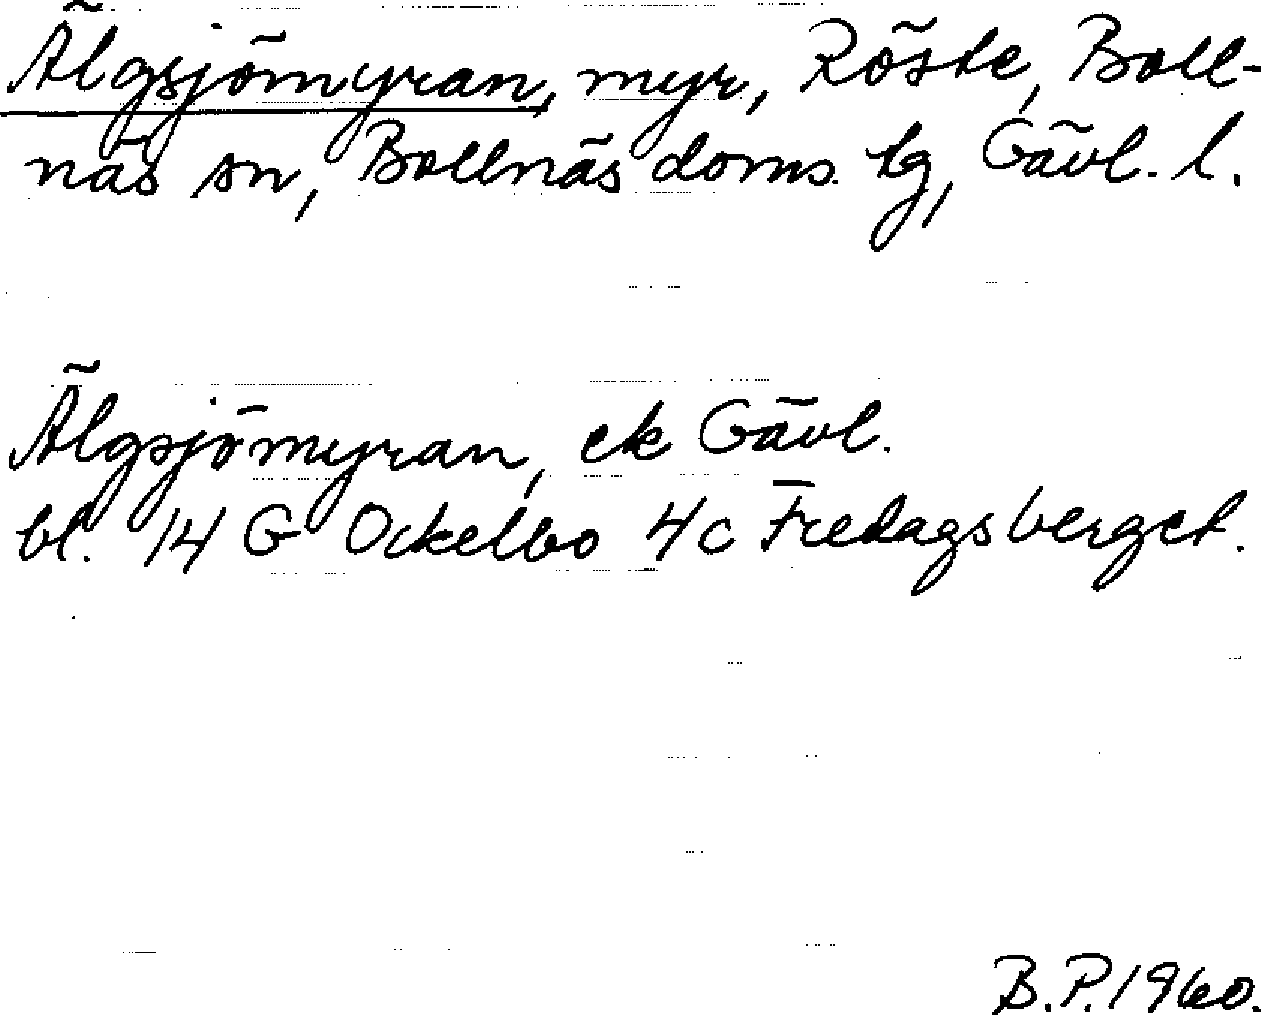 Älgsjömyran, myr, Röste, Boll-
näs sn, Bollnäs doms. tg, Gävl. l.
Älgsjömyran, ek Gävl.
bl. 14 G Ockelbo 4c Fredagsberget.
B.P. 1960.